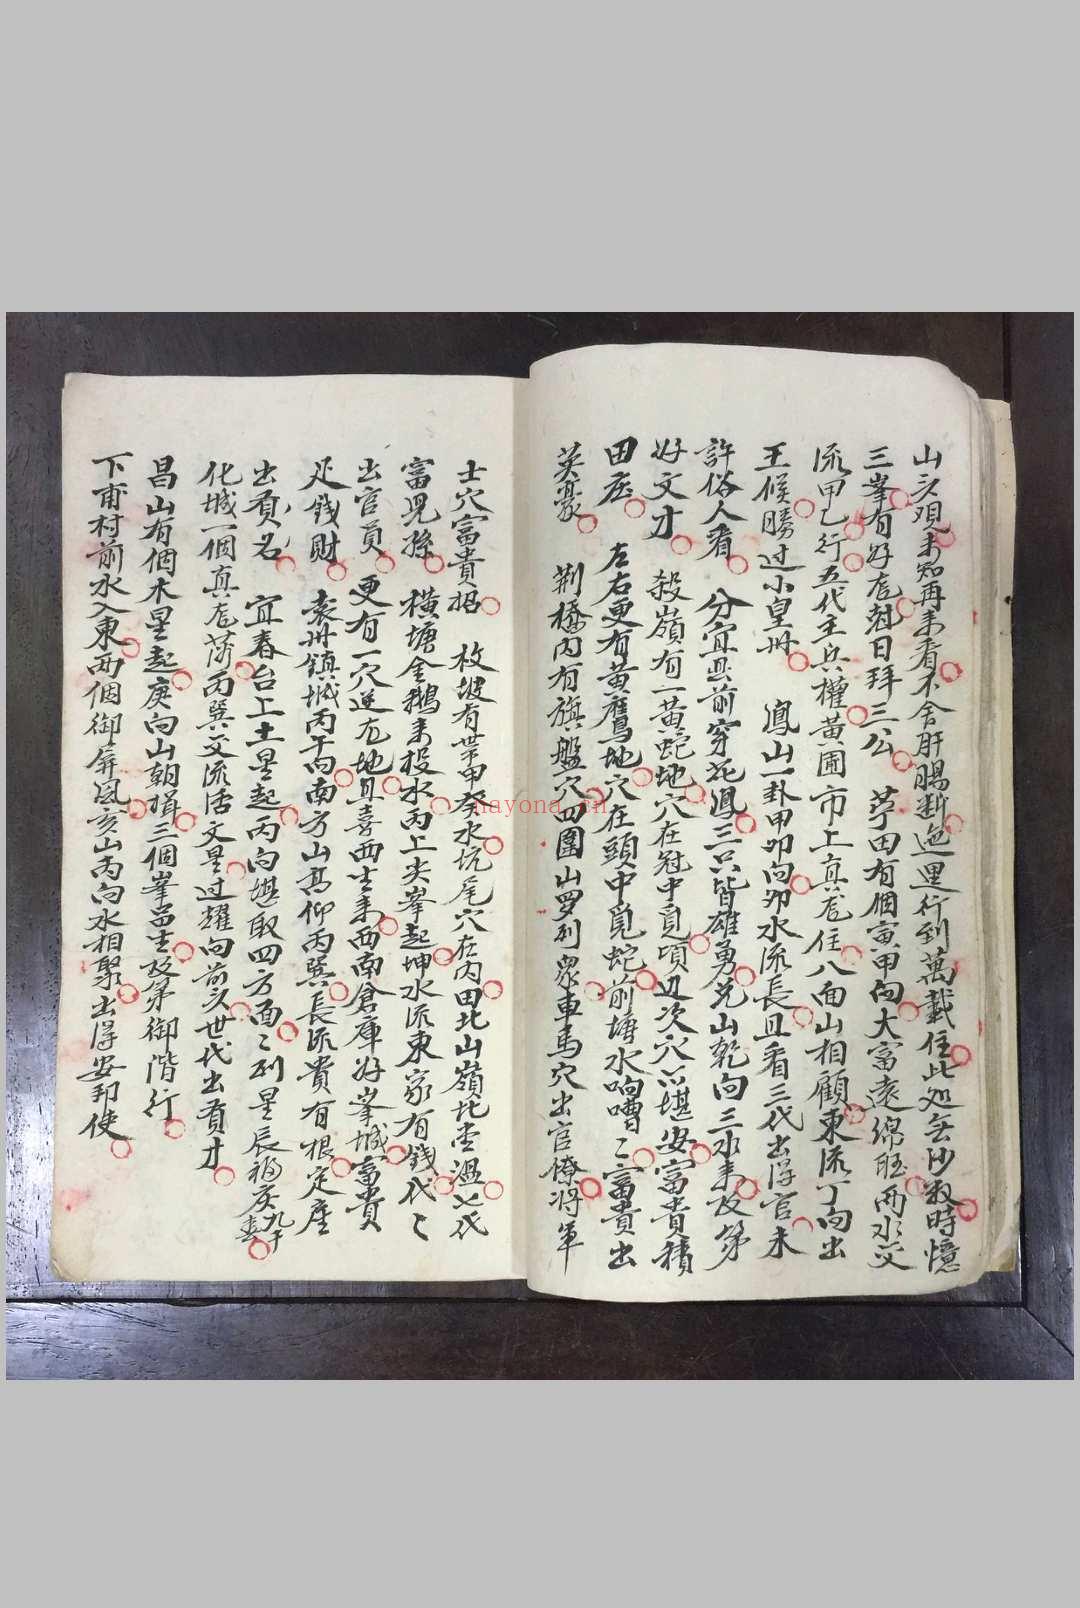 山頭观来知再来看不舍肝腸断迤里行到萬載住此处無沙数時憶
三峯有好尨尅日拜三公 芋田有個寅甲向大富遠綿旺两水交
流甲乙行五代主兵權黄圃市上真尨住八面山相顧東流丁向出
王候勝过小皇州 鳳山一卦甲卯向卯水流長且看三代出得官未
許俗人看 分宜县前穿花鳳三只皆雄勇兌山乾向三水来及第
好文才 殺嶺有一黄蛇地穴在冠中覓頃边次穴亦堪安富貴積
田庄 左右更有黄鷹地穴在頭中覓蛇前塘水响嘈〻富貴出
英豪 荆橋内有旗盤穴四圍山罗列眾車馬穴出官僚将軍
士穴富貴招 枚坡有 甲癸水坑尾穴在内田北山嶺北 温七代
富児孫 横塘金鵝来投水丙上尖峯起坤水流東家有錢代〻
出官員 更有一穴逆尨地且喜西生来西南倉庫好峯城富貴
足錢財 袁州鎮城丙午向南方山髙仰丙巽長流貴有根定産
出贵名 宜春台上土星起丙向堪取四方面〻列星辰福
化城一個真尨落丙巽交流活文星过耀向前头世代出貴才
昌山有個木星起庚向山朝揖三個峯品生及第御階行
下甫村前水入東两個御屏風亥山丙向水相聚出得安邦使
nayona.cn